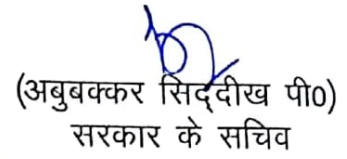 (अबुबक्कर सिद्दीख पी०)
सरकार के सचिव